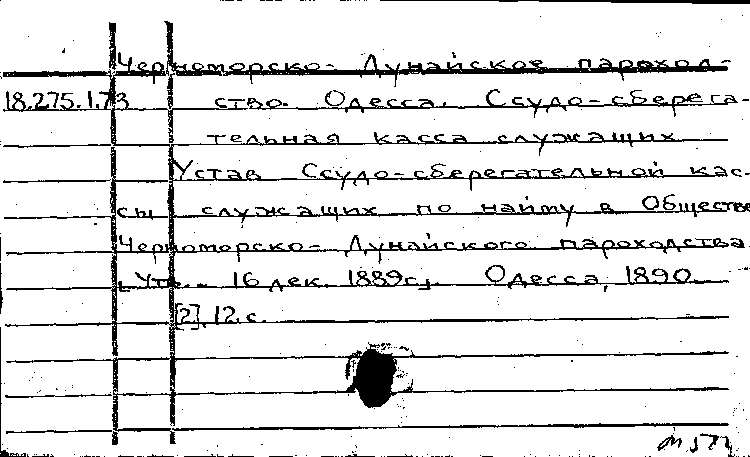 Черноморско-Дунайское пароход-
18.275.1.73 ство. Одесса. Ссудо-сберега-
тельная касса служащих
Устав Ссудо-сберегательной кас-
сы служащих по найму в Обществе
Черноморско-Дунайского пароходства
[Утв. 16 дек. 1889г]. Одесса, 1890.
[2], 12 с.